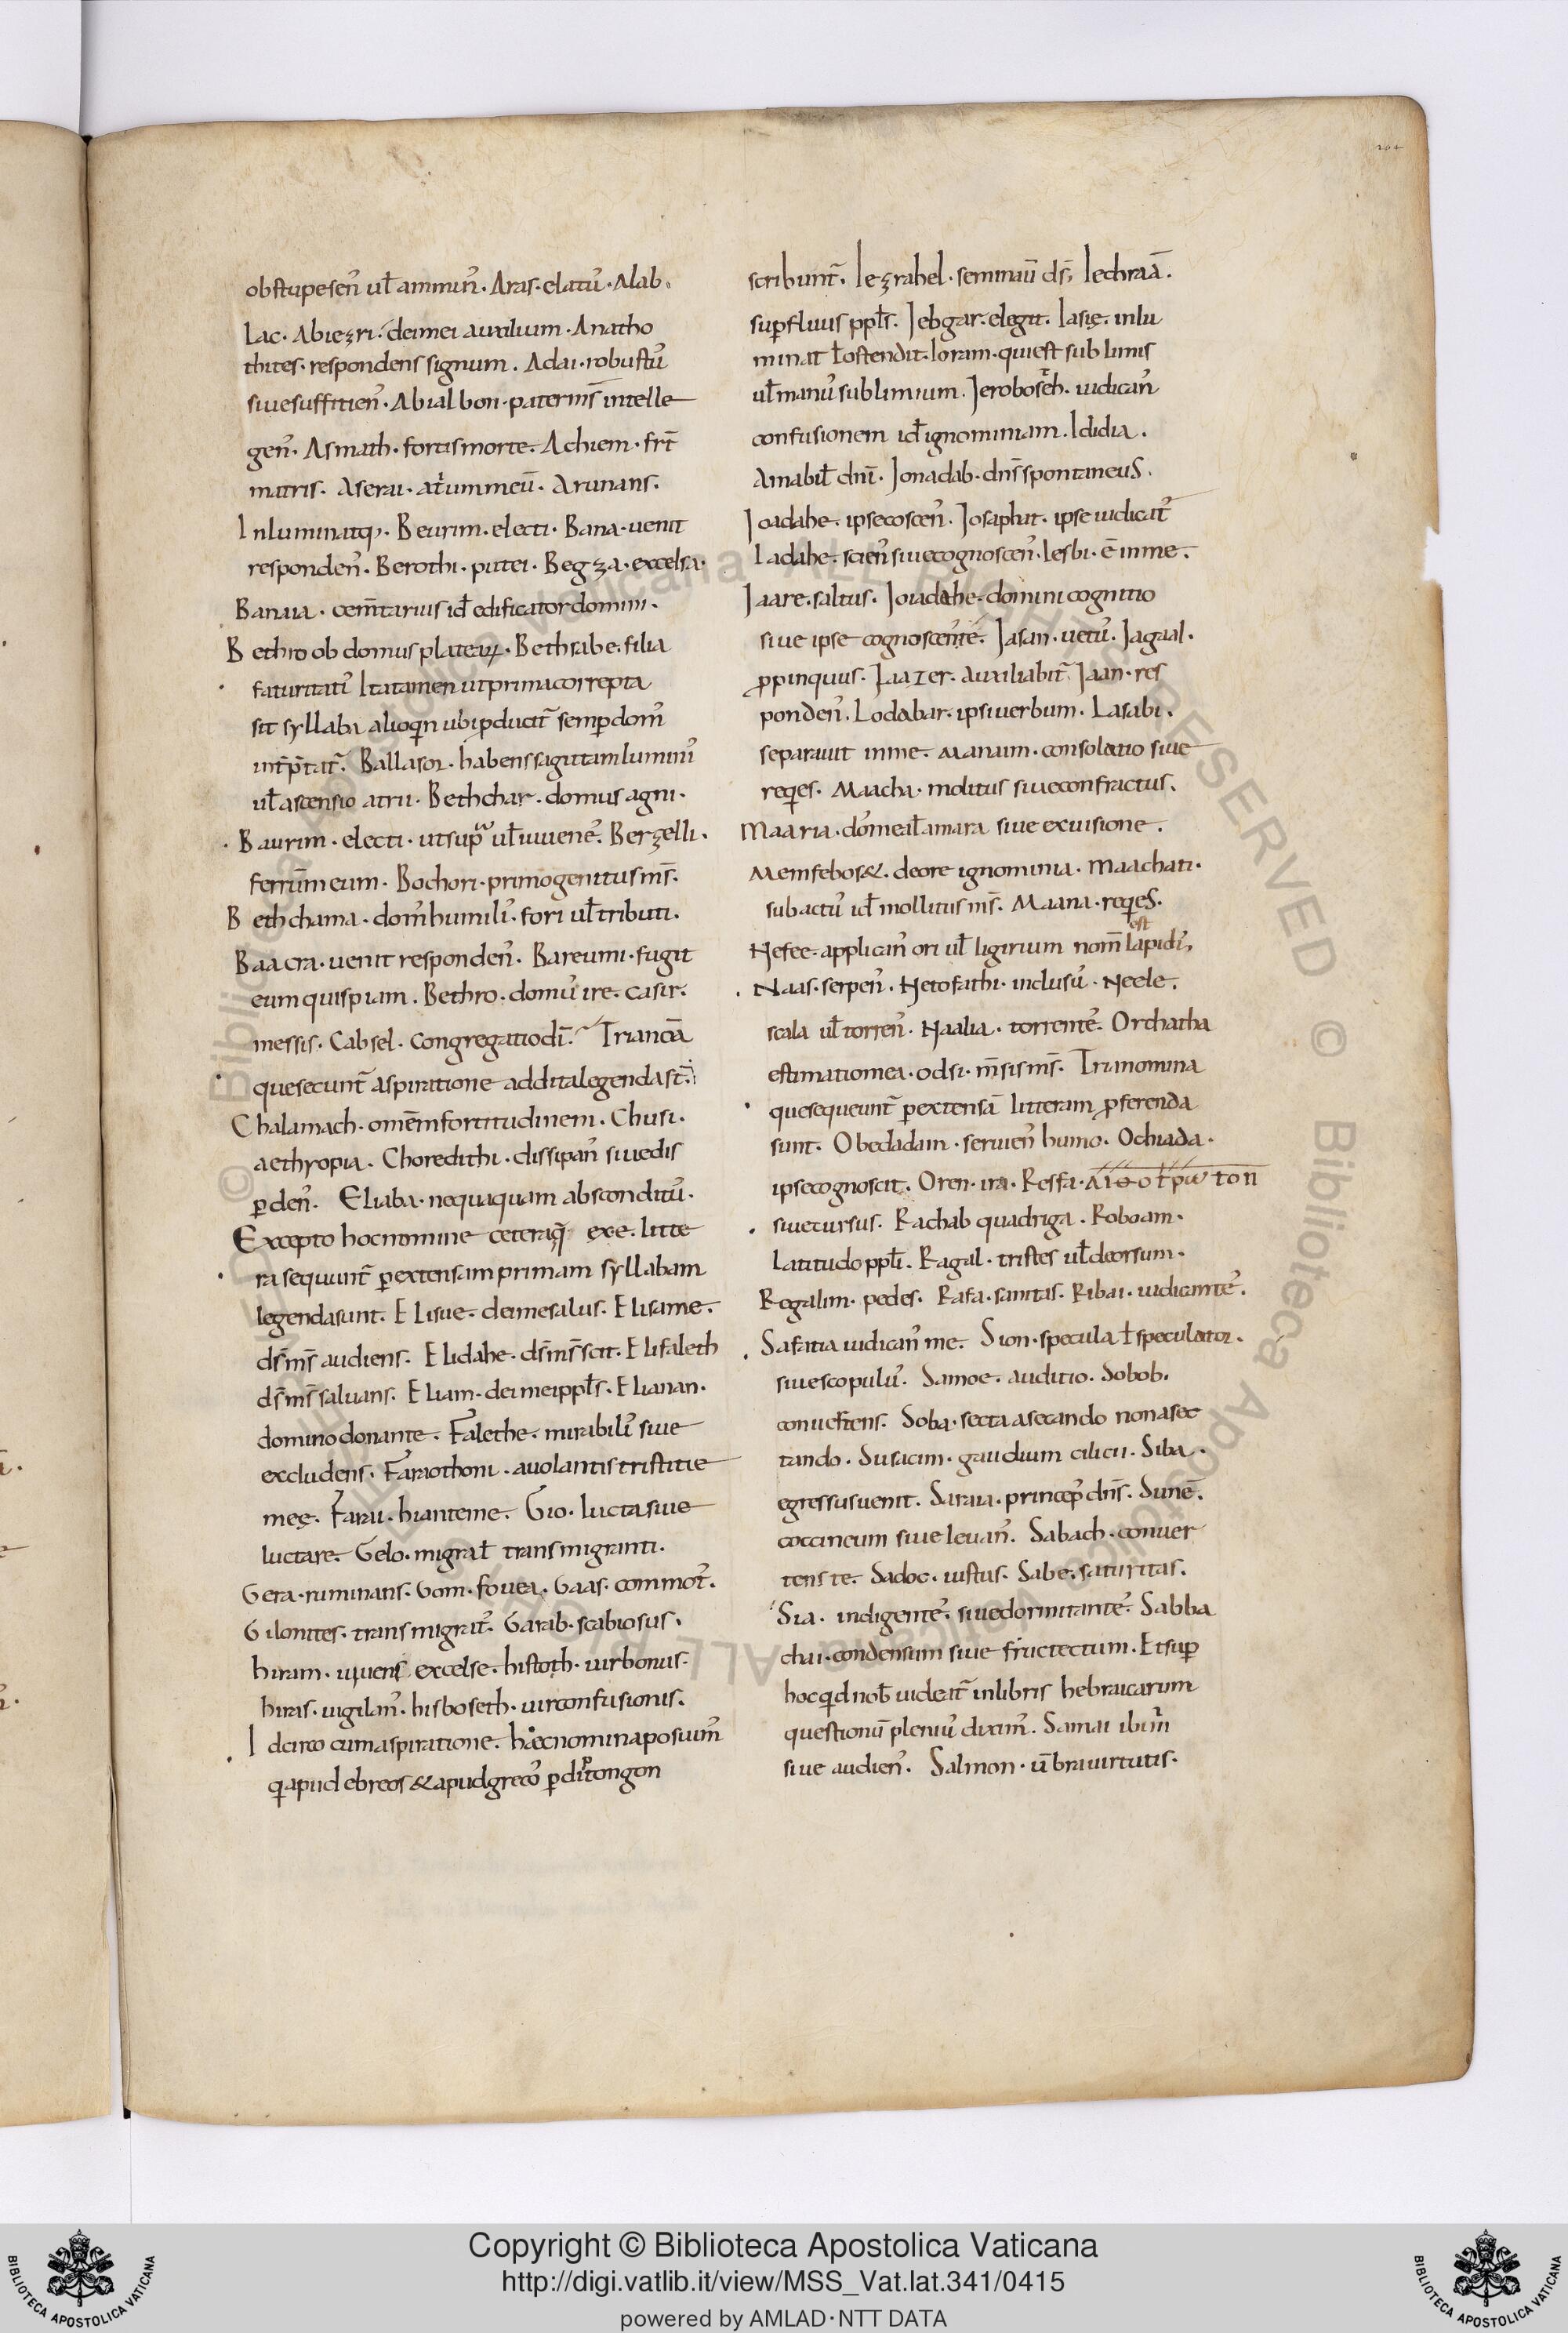 obstupescen̉ ul̃ ammin̉. Aras. elatu᷒. Alab.
Lac. Abiezri. dei mei auxilium. Anatho
thites. respondens signum. Adai. robustu᷒
siue suffitien̉. Abialbon. pater ms̃ intelle
gen̉. Asmath. fortis morte. Achiem. frt̃
matris. Aserai. atrium meū. Arunans.
Inluminatq;. Beurim. electi. Bana. uenit
responden̉. Berothi. putei. Begza. excelsa.
Banaia. cem̃tarius id̃ edificator domini.
Bethro ob domus platearꝝ. Bethsabe. filia
saturitati᷒ Ita tamen ut prima correpta
sit syllaba alioqn ubi ꝓducit᷒ semp̱ dom᷒
int̃p̃tat᷒. Ballasor. habens sagittam lumini᷒
ul̃ ascensio atrii. Bethchar. domus agni.
Baurim. electi. ut supra ul̃ iuuene᷒. Berzelli.
ferrum̄ eum. Bochori. primogenitus ms̃.
Bethchama. dom᷒ humili᷒. fori ul̃ tributi.
Baacra. uenit responden̉. Bareumi. fugit
eum quispiam. Bethro. domu᷒ ire. Casir.
messis. Cabsel. congregatio dī. Trianoā
que secunt᷒ aspiratione addita legenda st̄.
Chalamach. omēm fortitudinem. Chusi.
aethyopia. Choredithi. dissipan̉ siue dis
ꝑden̉. Eliaba. nequaquam absconditu᷒.
Excepto hoc nomine cetera q̄ ex e. litte
ra sequunt᷒ ꝑ extensam primam syllabam
legenda sunt. Elisue. dei mei salus. Elisame.
ds̃ ms̃ audiens. Elidahe. ds̃ ms̃ scit. Elifaleth
ds̃ ms̃ saluans. Eliam. dei mei ppl̃s. Elianan.
domino donante. Falethe. mirabili᷒ siue
excludens. Faraothoni. auolantis tristitie
meę. Farai. hiante me. Gio. lucta siue
luctare. Gelo. migrat᷒ transmigranti.
Gera. ruminans. Gom. fouea. Gaas. commot᷒.
Gilonites. transmigrat᷒. Garab. scabiosus.
hiram. uiuens excelse. histoth. uir bonus.
hiras. uigilan̉. hisboseth. uir confusionis.
Idcirco cum aspiratione. hæc nomina posuim᷒
q apud ebreos & apud greco᷒ ꝑ diptongon
scribunt᷒. Iezrahel. seminauī ds̃. Iechraā.
suꝑfluus ppl̃s. Iebgar. elegit. Iasię. inlu
minat ł ostendit. Ioram. qui est sublimis
ul̃ manu᷒ sublimium. Jeroboseth. iudican̉
confusionem id̃ ignominiam. Ididia.
Amabil̃ dnī. Jonadab. dn̄s spontaneus.
Joadahe. ipse coscen̉. Josaphat. ipse iudicat᷒
Iadahe. scien̉ siue cognoscen̉. Iesbi. ē in me.
Jaare. saltus. Joiadahe. domini cognitio
siue ipse cognoscente᷒. Jasan. uetu᷒. Jagaal.
ꝓpinquus. Jaazer. auxiliabit᷒ Jaan. res
ponden̉. Lodabar. ipsi uerbum. Lasabi.
separauit in me. Manaim. consolatio siue
reqes. Maacha. molitus siue confractus.
Maaria. do᷒ mea ul̃ amara siue ex uisione.
Memfebos&. de ore ignominia. Maachati.
subactu᷒ id̃ mollitus ms̃. Maana. reqes.
Nefee. applican̉ ori ul̃ ligirium nom̃ est lapidi᷒,
Naas. serpen̉. Netofathi. inclusu᷒. Neele.
scala ul̃ torren̉. Naalia. torrente᷒. Orchatha
estimatio mea. odsi. m̃sis ms̃. Tria nomina
que sequunt᷒ ꝑ extensā litteram ꝓferenda
sunt. Obedadam. seruien̉ humo. Ochiada.
ipse cognoscit. Oren. ira. Resfa. ΛΙΘΟCΤΡωΤΟΝ
siue cursus. Rachab quadriga. Roboam.
Latitudo ppl̃i. Ragal. tristes ul̃ deorsum.
Regalim. pedes. Rafa. sanitas. Ribai. iudicante᷒.
Safatia iudican̉ me. Sion. specula ł speculator.
siue scopulu᷒. Samoe. auditio. Sobob.
conuertens. Soba. secta a secando non a sec
tando. Susacim. gaudium cilicii. Siba.
egressus uenit. Saraia. princep᷒ dn̄s. Sunē.
coccineum siue leuan̉. Sabach. conuer
tens te. Sadoc. iustus. Sabe. saturitas.
Sia. indigente᷒. siue dormitante᷒. Sabba
chai. condensum siue fructectum. Et suꝑ
hoc qd nob᷒ uideat᷒ in libris hebraicarum
questionū pleniu᷒ dixim᷒. Samai ibim̉
siue audien̉. Salmon. ūbra uirtutis.
Copyright © Biblioteca Apostolica Vaticana
http://digi.vatlib.it/view/MSS_Vat.lat.341/0415
powered by AMLAD·NTT DATA
BIBLIOTECA APOSTOLICA VATICANA
BIBLIOTECA APOSTOLICA VATICANA